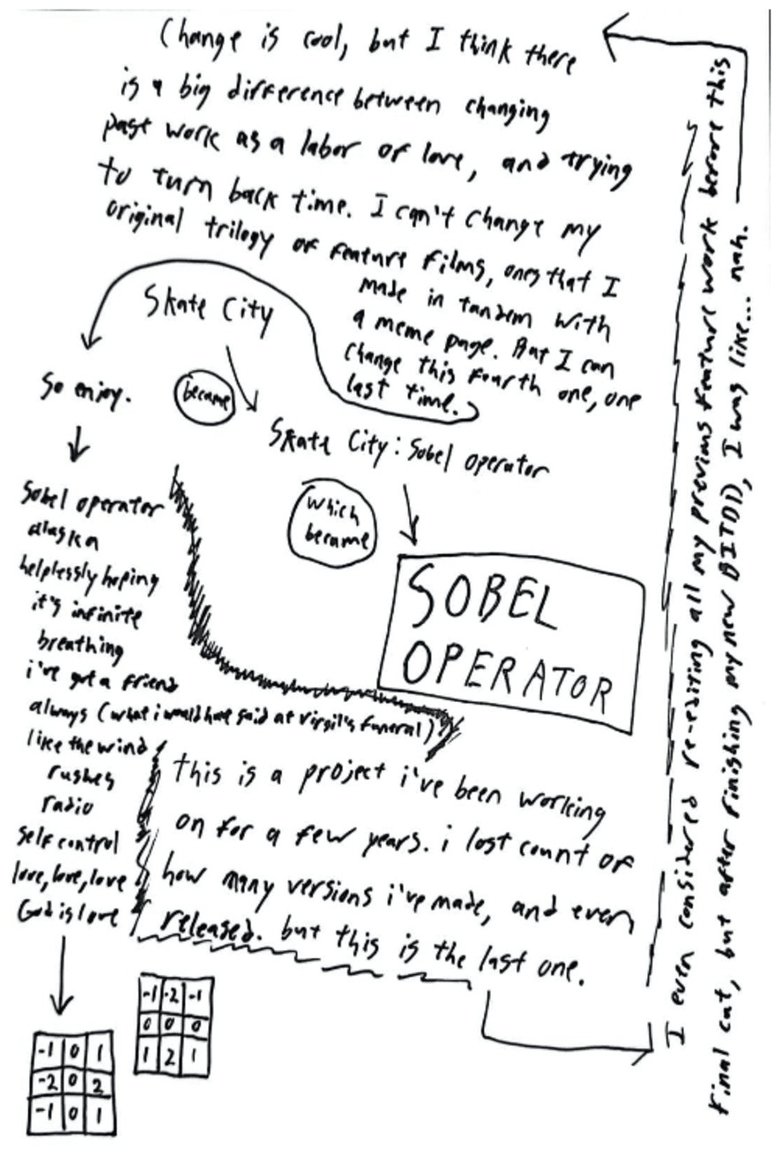 Change is cool, but I think there
is a big difference between changing
past work as a labor of love, and trying
to turn back time. I can't change my
original trilogy of feature films, ones that I
made in tandem with
a meme page. But I can
change this fourth one, one
last time.
Skate City
became
So enjoy.
Skate City: Sobel operator
which
became
SOBEL
OPERATOR
Sobel operator
alaska
helplessly hoping
it's infinite
breathing
i've got a friend
always (what i would have said at Virgil's funeral)
like the wind
rushes
radio
self control
love, love, love
God is love
this is a project i've been working
on for a few years. i lost count of
how many versions i've made, and even
released. but this is the last one.
I even considered re-editing all my previous feature work before this
final cut, but after finishing my new BITD(I), I was like... nah.
-1 -2 -1
0 0 0
1 2 1
-1 0 1
-2 0 2
-1 0 1